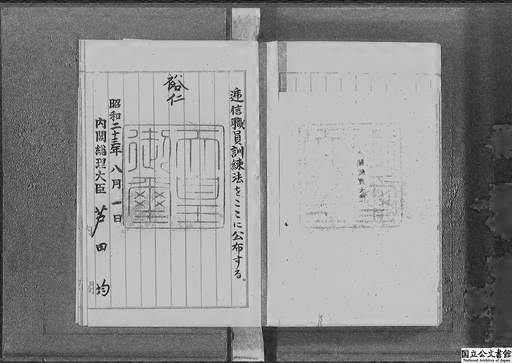 逓信職員訓練法をここに公布する。
裕仁
天皇御璽
昭和二十三年八月一日
内閣総理大臣 芦田均
国立公文書館
National Archives of Japan